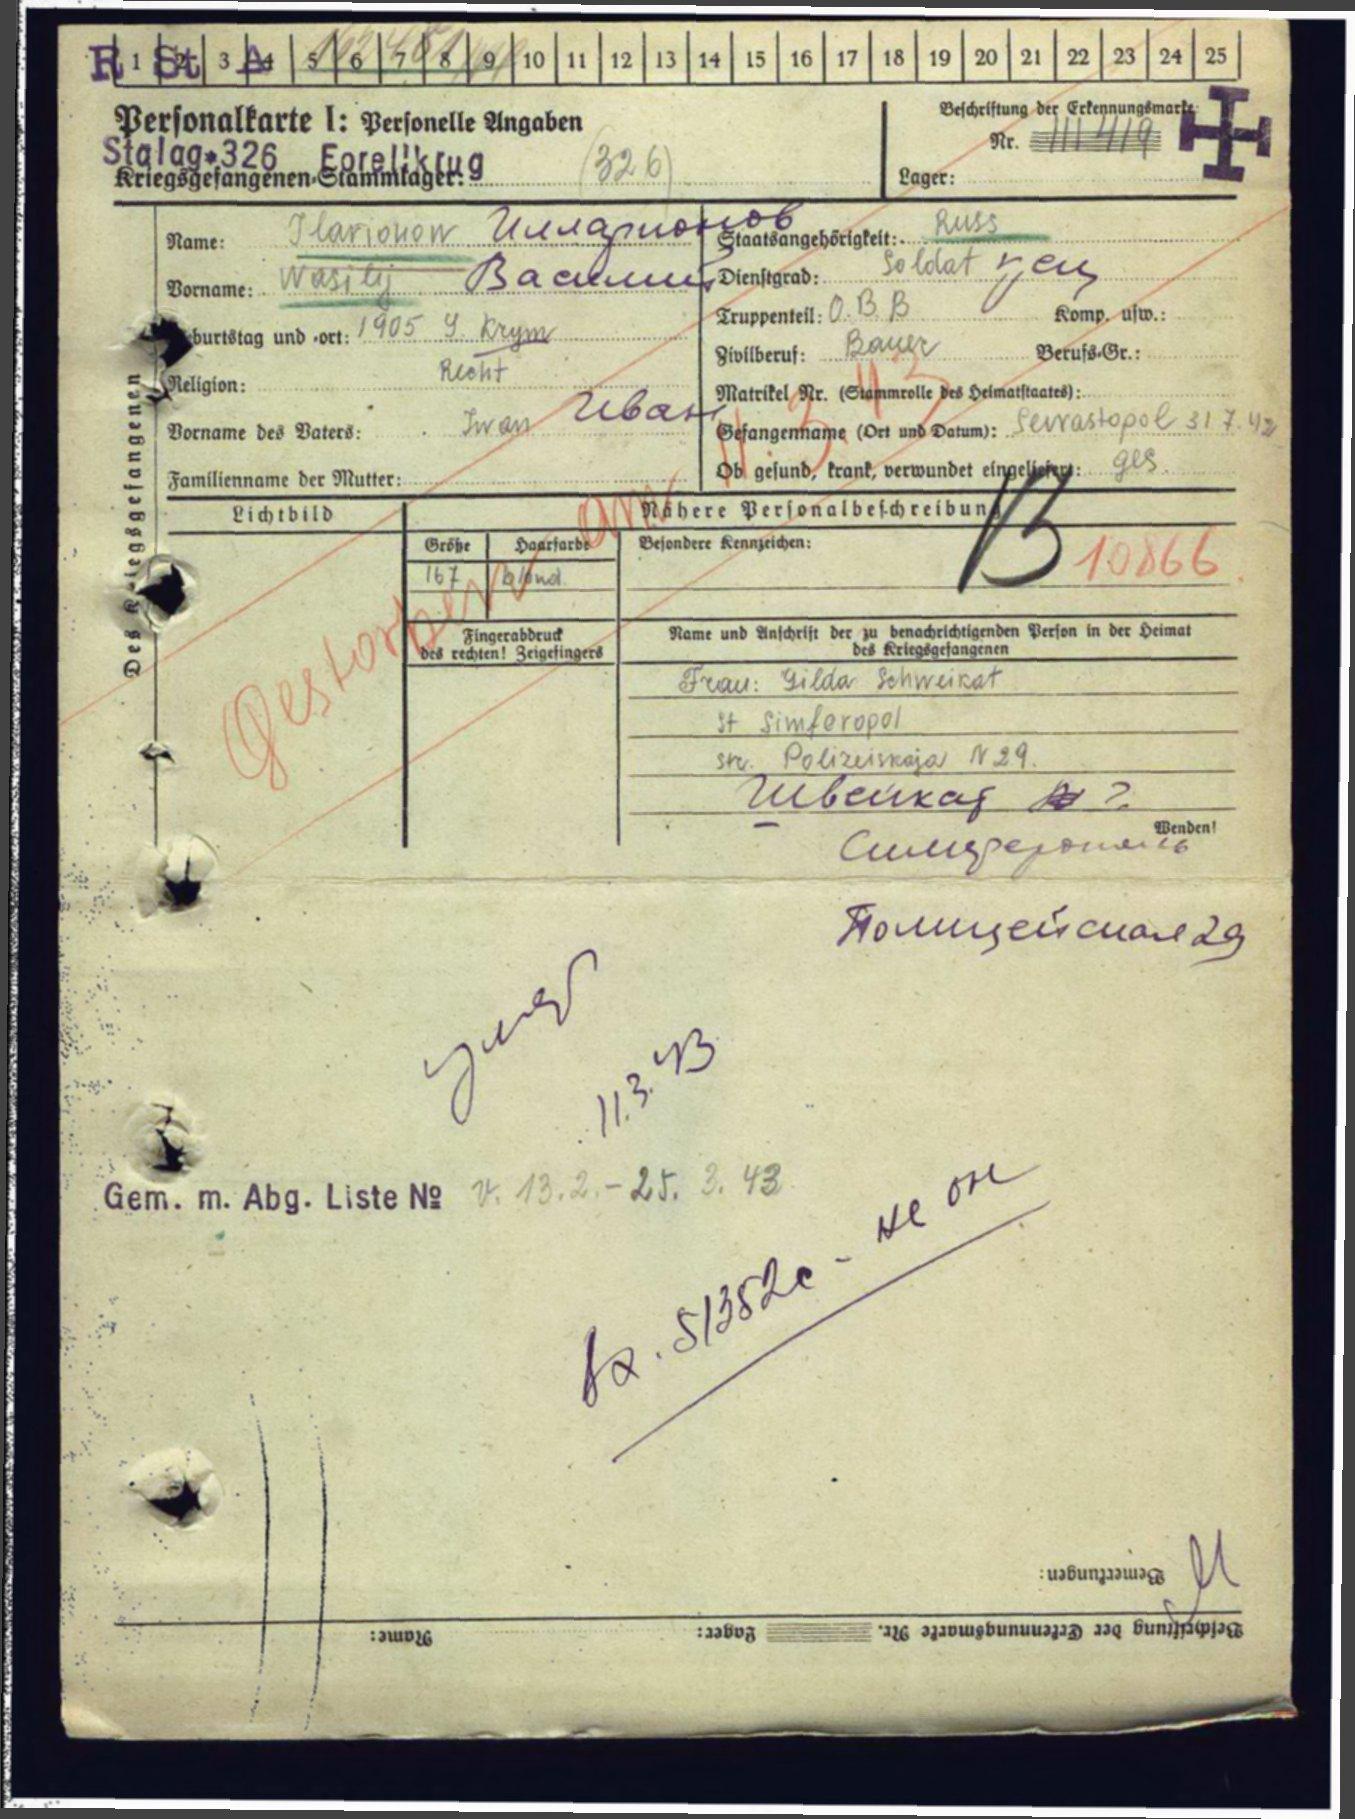 R 1 St 2 3 A 4 5 6 7 8 9 10 11 12 13 14 15 16 17 18 19 20 21 22 23 24 25
Personalkarte I: Personelle Angaben
Beschriftung der Erkennungsmarke
Nr. 111419
Stalag 326 Forellkrug
Kriegsgefangenen-Stammlager: (326)
Lager:
Des Kriegsgefangenen
Name: Ilarionow Илларионов
Vorname: Wasilij Василий
Geburtstag und -ort: 1905 G. Krym
Religion: Recht
Vorname des Vaters: Iwan Иван
Familienname der Mutter:
Staatsangehörigkeit: Russ
Dienstgrad: Soldat
Truppenteil: O.B.B Komp. usw.:
Zivilberuf: Bauer Berufs-Gr.:
Matrikel Nr. (Stammrolle des Heimatstaates):
Gefangennahme (Ort und Datum): Sewastopol 31 7. 42
Ob gesund, krank, verwundet eingeliefert: ges.
Gestorben am 11.3.43
Lichtbild
Nähere Personalbeschreibung
Größe Haarfarbe
167 blond
Besondere Kennzeichen:
B 10866.
Fingerabdruck
des rechten! Zeigefingers
Name und Anschrift der zu benachrichtigenden Person in der Heimat
des Kriegsgefangenen
Frau: Gilda Schweikat
St Simferopol
str. Polizeiskaja N 29.
Швейкат
Wenden!
Симферополь
Полицейская 29
умер
11.3.43
Gem. m. Abg. Liste № v. 13.2.-25.3.43
вх. 51352с - не он
Bemerkungen:
Beschriftung der Erkennungsmarke Nr. Lager: Name: